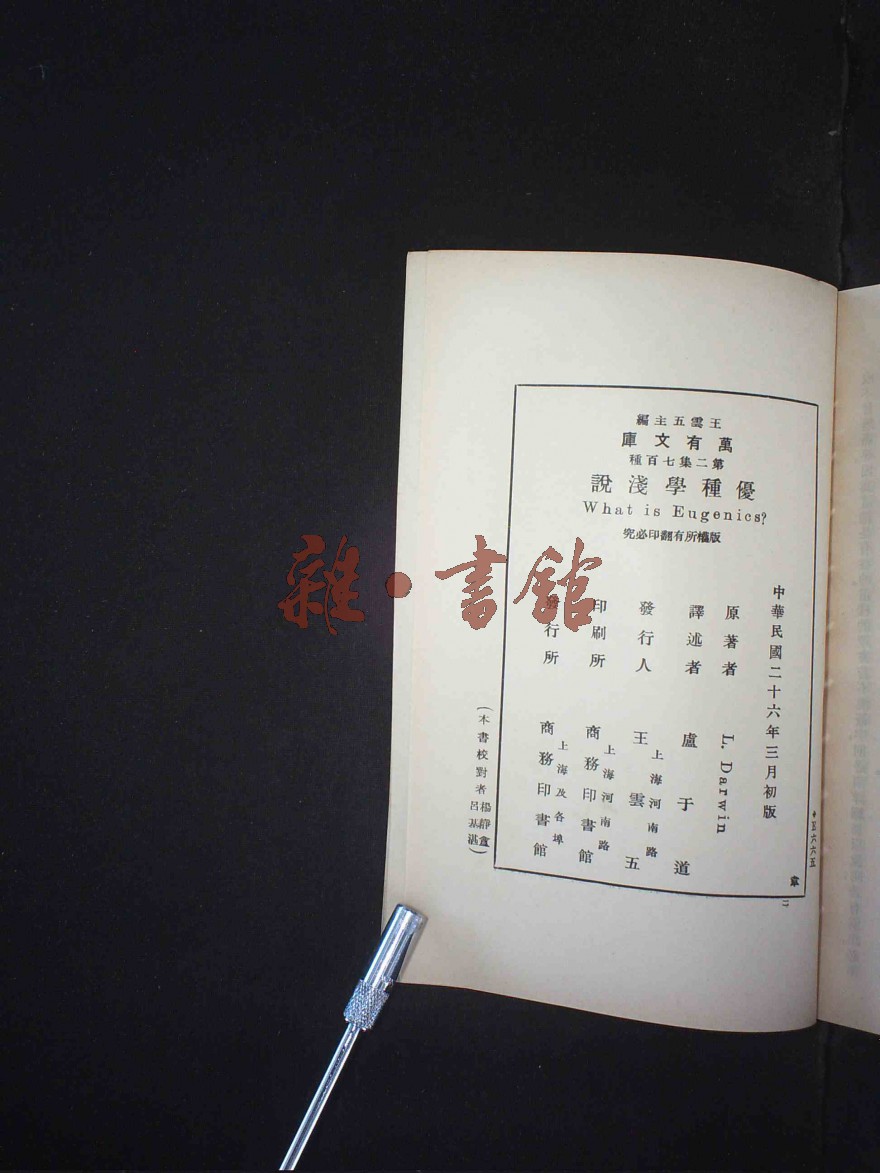 王雲五主編
萬有文庫
第二集七百種
優種學淺說
What is Eugenics?
版權所有翻印必究
中華民國二十六年三月初版
原著者 L. Darwin
譯述者 盧于道
發行人 王雲五
上海河南路
印刷所 商務印書館
上海河南路
發行所 商務印書館
上海及各埠
(本書校對者楊靜盦
呂基湛)
章
雜·書館